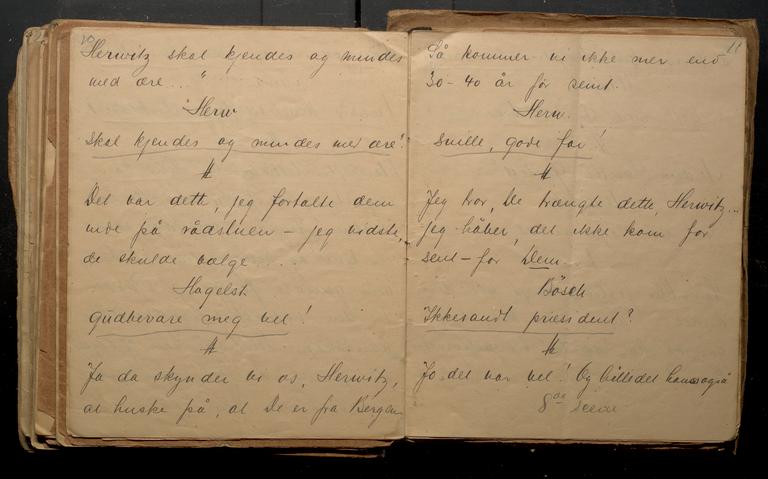 10
Herwitz skal kjendes og mindes
med ære ..."
Herw
Skal kjendes og mindes med ære!
#
Det var dette, jeg fortalte dem
inde på rådstuen – jeg vidste,
de skulde vælge ...
Hagelst
Gudbevare meg vel!
#
Ja da skynder vi os, Herwitz,
at huske på, at De er fra Bergen
11
Så kommer vi ikke mer end
30-40 år for seint.
Herw.
Snille, gode far!
#
Jeg tror, De trængte dette, Herwitz...
jeg håber, det ikke kom for
sent – for Dem
Bösch
Ikkesandt president?
#
Jo det var vel! Og billedet hans også
8de scene